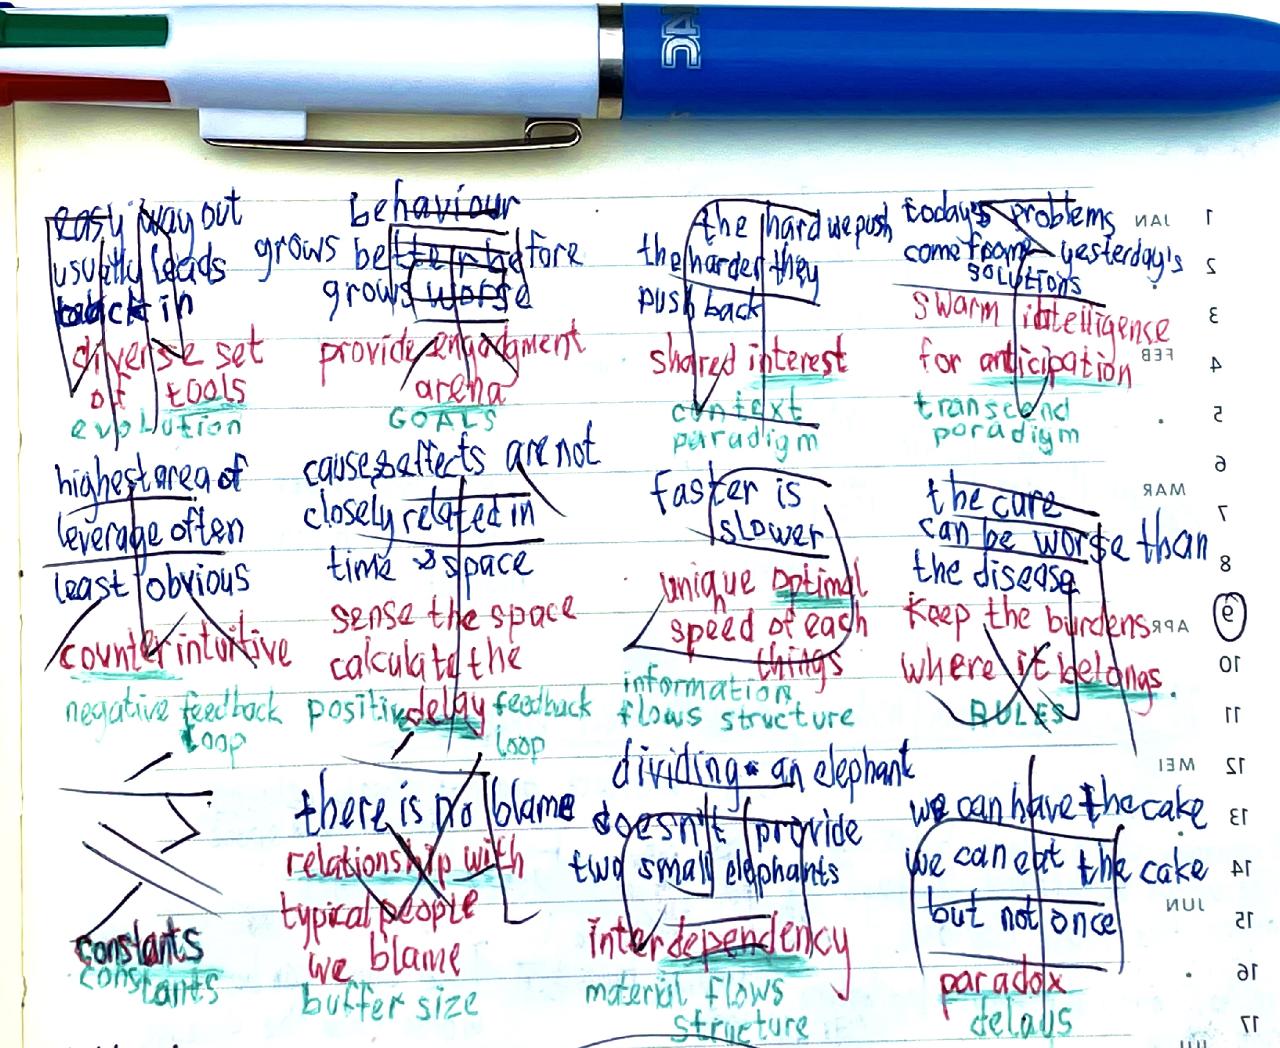 easy way out
usually leads
back in
diverse set
of tools
evolution
behaviour
grows better before
grows worse
provide engadgment
arena
GOALS
the hard we push
the harder they
push back
shared interest
context
paradigm
today's problems
come from yesterday's
solutions
swarm intelligence
for anticipation
transcend
paradigm
highest area of
leverage often
least obvious
counter intuitive
negative feedback
loop
cause & effects are not
closely related in
time & space
sense the space
calculate the
delay
positive feedback
loop
faster is
slower
unique optimal
speed of each
things
information
flows structure
the cure
can be worse than
the disease
Keep the burdens
where it belongs
RULES
constants
constants
there is no blame
relationship with
typical people
we blame
buffer size
dividing an elephant
doesn't provide
two small elephants
interdependency
material flows
structure
we can have the cake
we can eat the cake
but not once
paradox
delays
1
JAN
2
3
4
FEB
5
6
MAR
7
8
9
APR
10
11
12
MEI
13
14
JUN
15
16
17